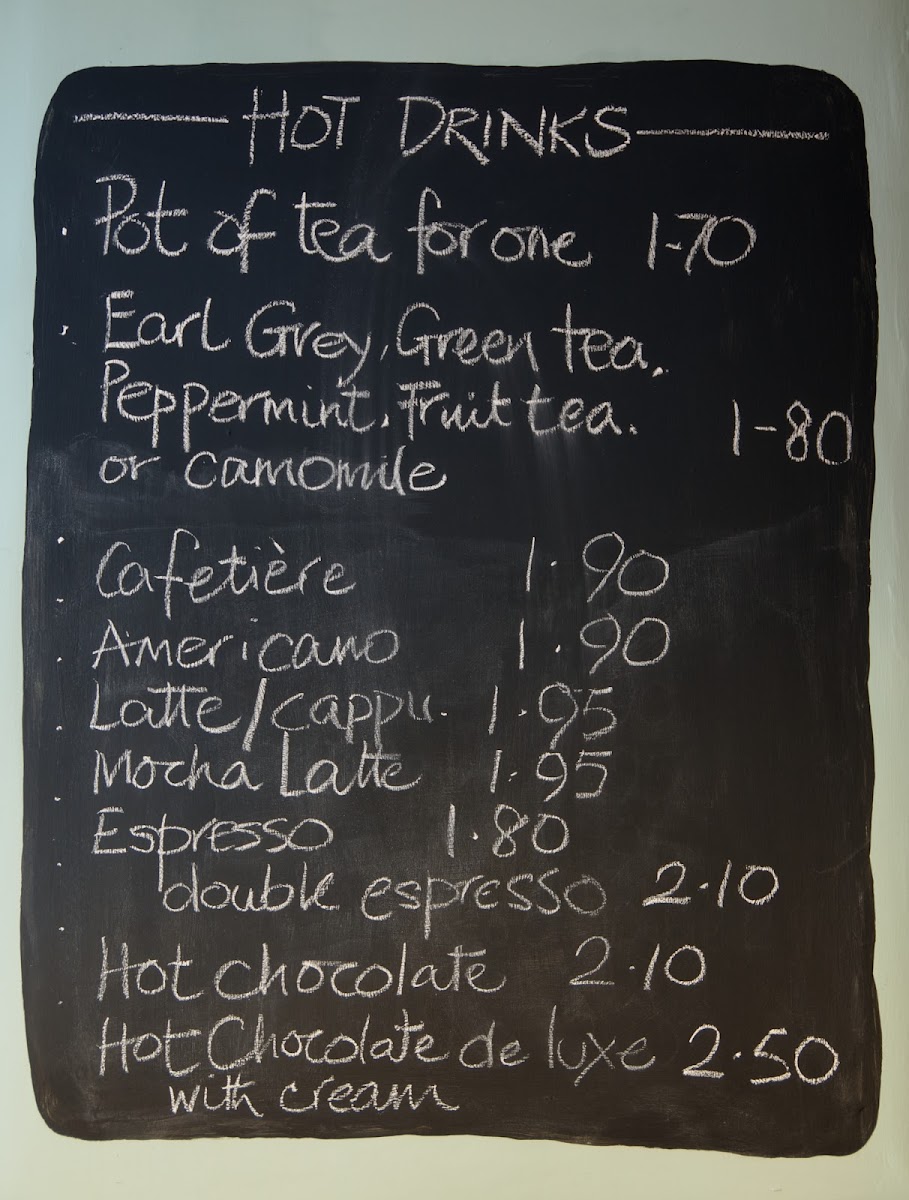 HOT DRINKS
Pot of tea for one 1-70
Earl Grey, Green tea,
Peppermint, Fruit tea. 1-80
or camomile
Cafetière 1.90
Americano 1.90
Latte/cappu. 1.95
Mocha Latte 1.95
Espresso 1.80
double espresso 2.10
Hot chocolate 2.10
Hot Chocolate de luxe 2.50
with cream